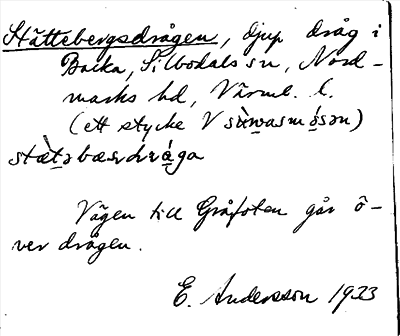 Stättebergsdrågen, djup dråg i
Backa, Silbodals sn, Nord-
marks hd, Värml. l.
(ett stycke V
stæ̀t̠əbærdrǻga
Vägen till Gråfoten går ö-
ver drågen.
E. Andersson 1933